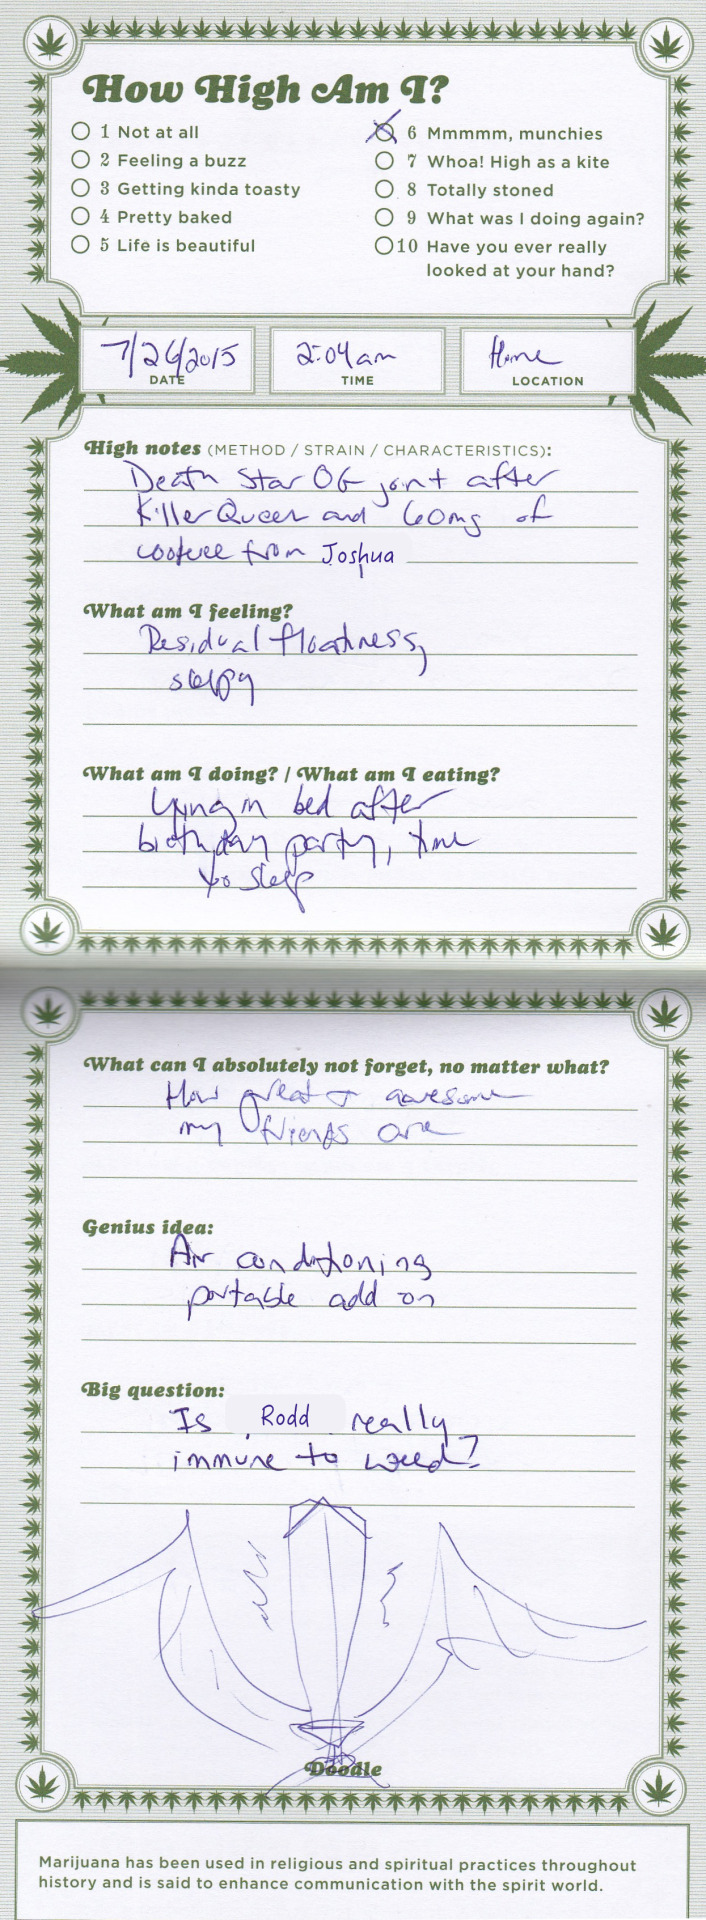 How High Am I?
1 Not at all
2 Feeling a buzz
3 Getting kinda toasty
4 Pretty baked
5 Life is beautiful
6 Mmmmm, munchies
7 Whoa! High as a kite
8 Totally stoned
9 What was I doing again?
10 Have you ever really
looked at your hand?
7/26/2015
DATE
2:04am
TIME
Home
LOCATION
High notes (METHOD / STRAIN / CHARACTERISTICS):
Death Star OG joint after
Killer Queen and 60mg of
from Joshua
What am I feeling?
Residual floatiness,
sleepy
What am I doing? / What am I eating?
Lying in bed after
birthday party, time
to sleep
What can I absolutely not forget, no matter what?
How great + awesome
my friends are
Genius idea:
Air conditioning
portable add on
Big question:
Is Rodd really
immune to weed?
Doodle
Marijuana has been used in religious and spiritual practices throughout
history and is said to enhance communication with the spirit world.